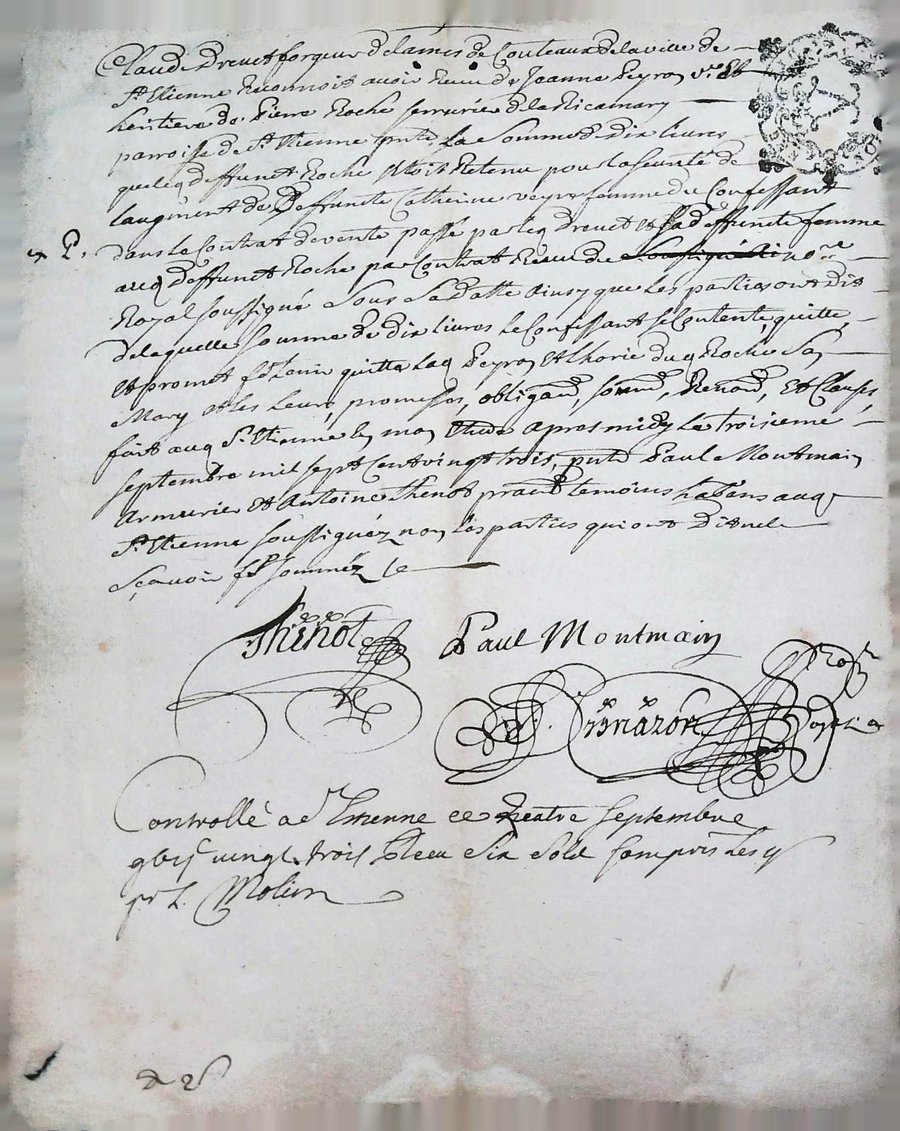 Claude Drevet forgeur de lames de Couteaux de la ville de
St. Etienne Reconnoit avoir Receu de Jeanne Peyron Ve. Et
heritiere de Pierre Roche serrurier de la Ricamary
parroisse de St. Etienne pnte. La Somme de dix livres
que leq deffunct Roche Retenu pour la seureté de
laugment de Deffuncte Catherine veyre femme du Confessant
dans le Contrat de vente passé par leq Drevet et sa deffuncte femme
aueq deffunct Roche par Contrat Receu de Soussigné no.re
Royal soussigné Sous Sa datte Ainsy que Les parties ont dit
de laquelle somme de dix livres Le Confessant se Contente, quitte,
Et promet fe. tenir quitte Laq Peyron Et lhoirie duq Roche Son
Mary et les Leurs, promesses, obligaõn, soumõn, Renaõn, Et Clauses,
fait auq St. Etienne En mon Etude apres midy Le troisieme
septembre mil sept Cent vingt trois, pnts Paul Montmain
Armurier Et Antoine thenot temoins habitans auq
St. Etienne soussignéz non Les parties qui ont dit ne le
sçavoir fe. sommés
Thënot Paul Montmain
no.re
Royal
Controllé a St Etienne ce quatre Septembre
vingt trois Receu Six Sols Compris Les
pr Molin